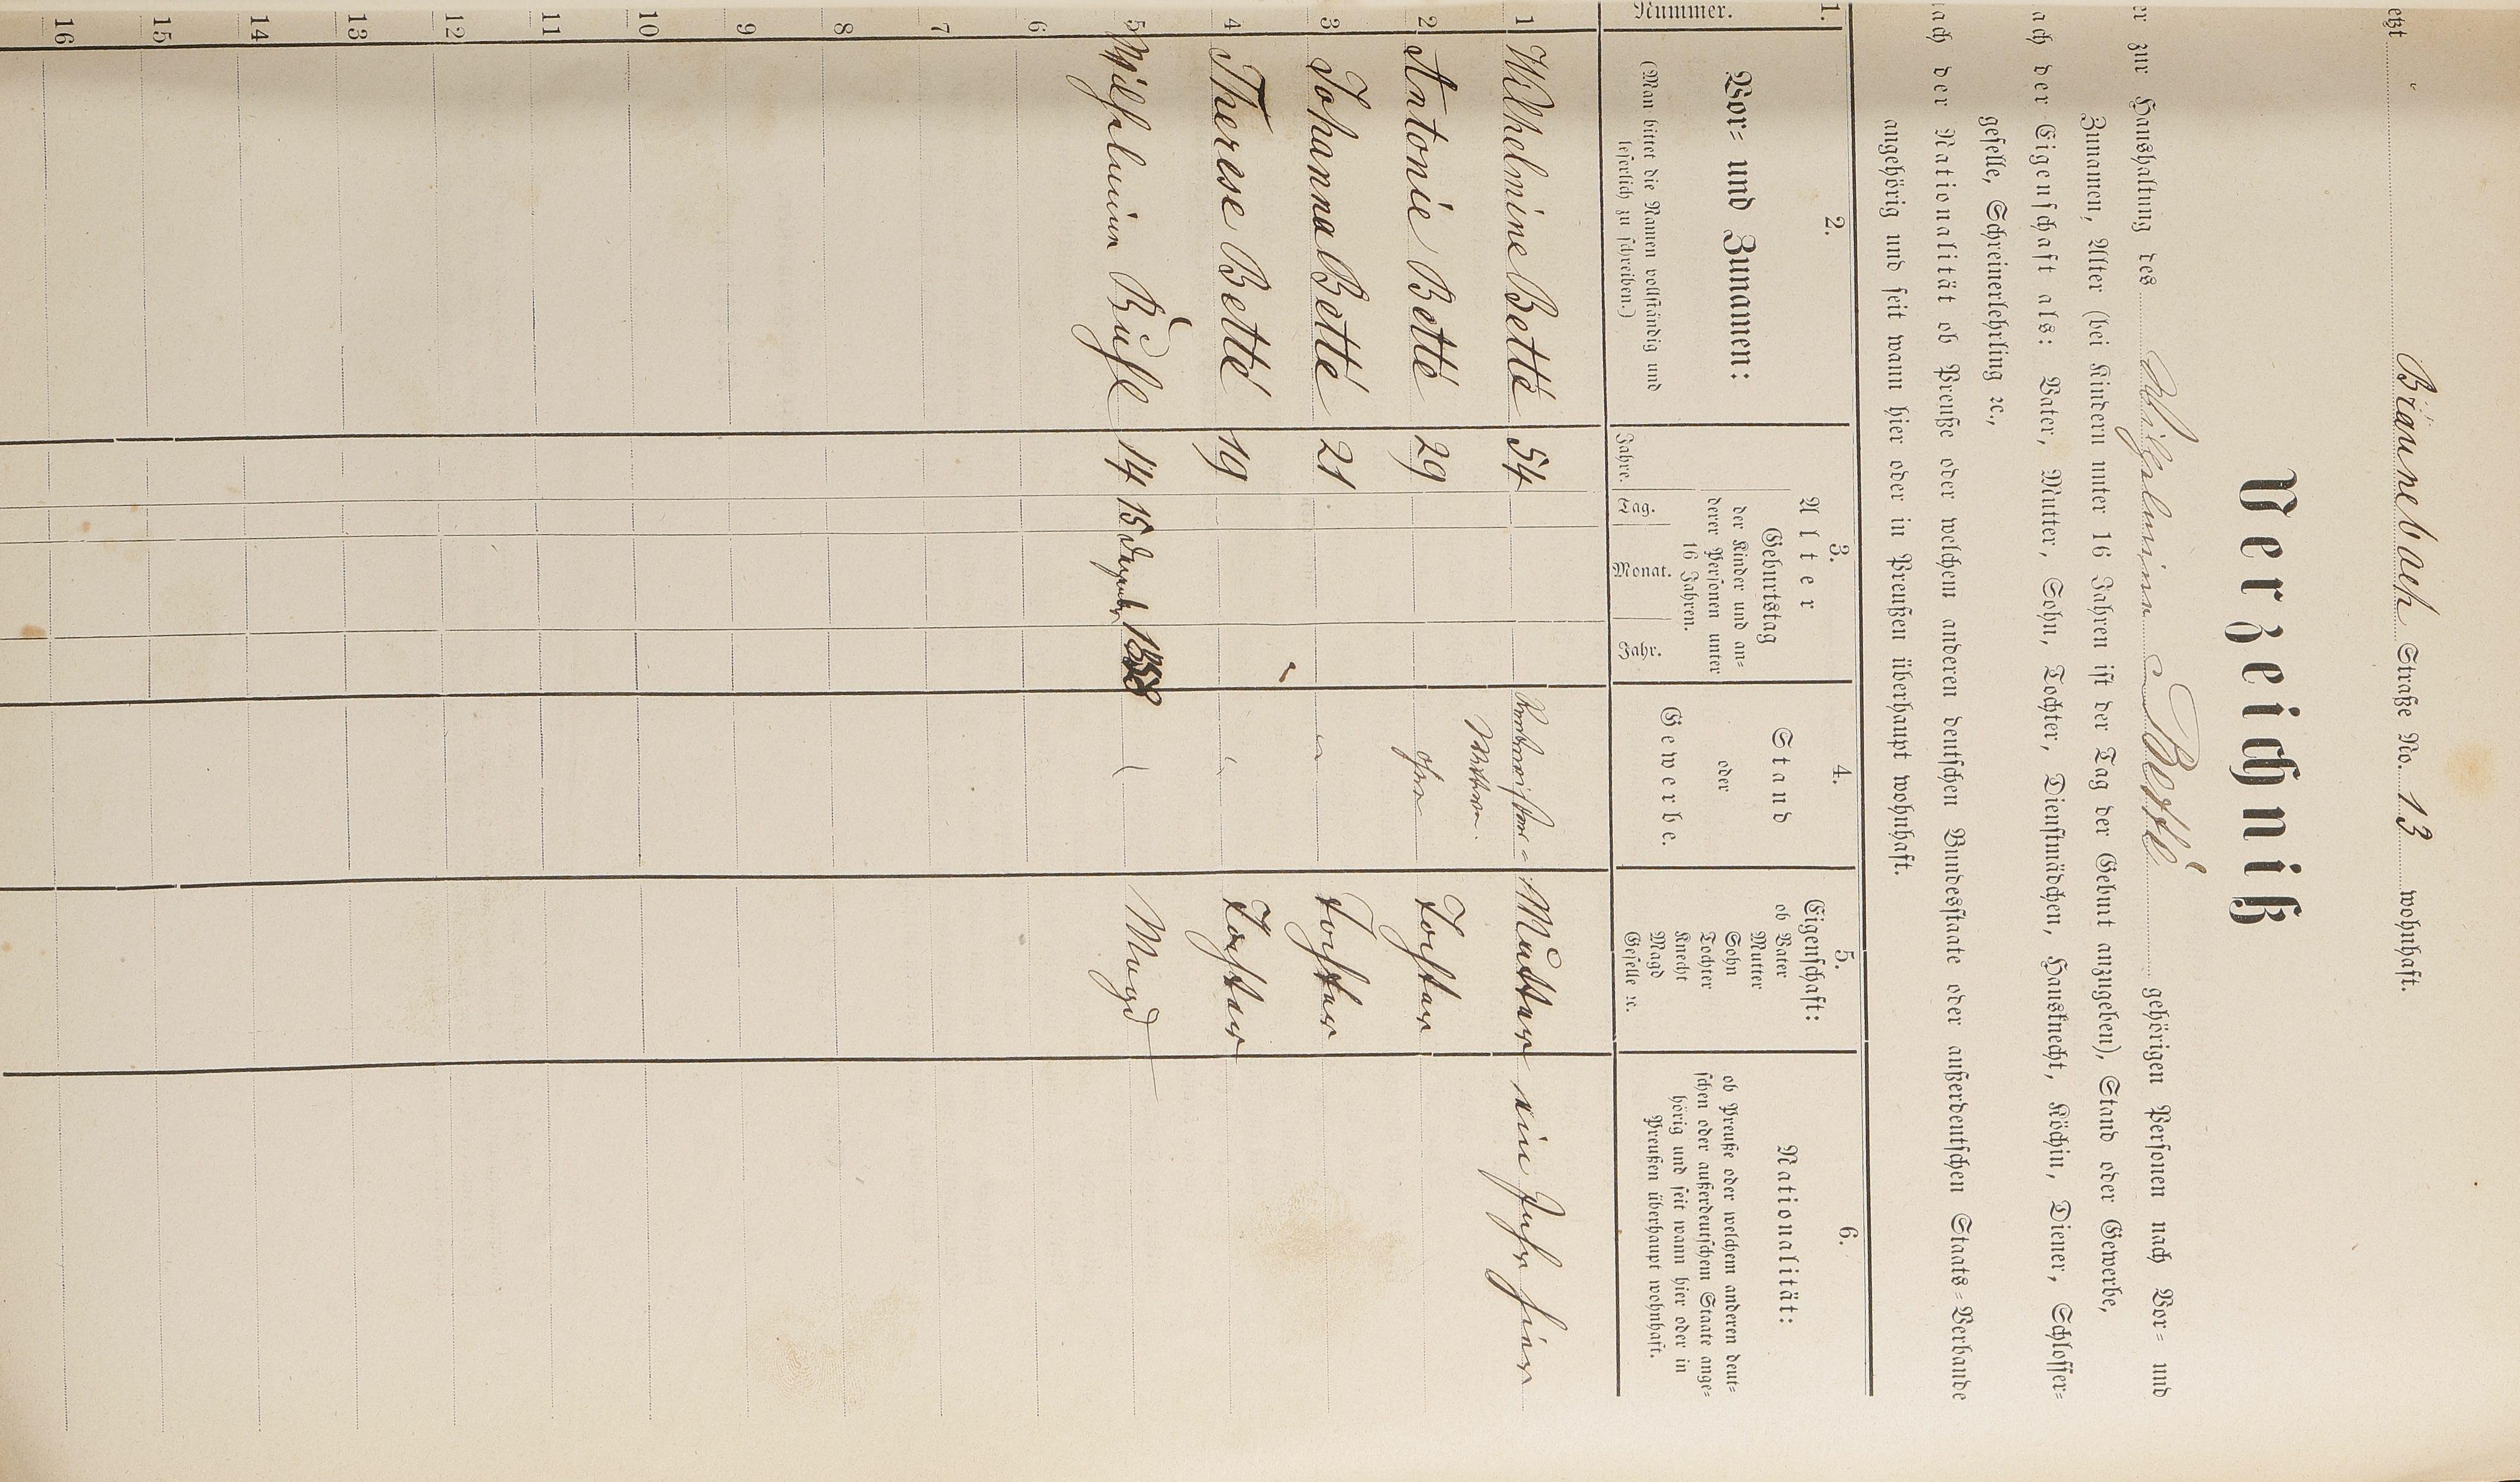 etzt Bräunebach Straße No. 13 wohnhaft.
Verzeichniß
er zur Haushaltung des Wilhelmine Betté gehörigen Personen nach Vor- und
Zunamen, Alter (bei Kindern unter 16 Jahren ist der Tag der Geburt anzugeben), Stand oder Gewerbe,
ach der Eigenschaft als: Vater, Mutter, Sohn, Tochter, Dienstmädchen, Hausknecht, Köchin, Diener, Schlosser-
geselle, Schreinerlehrling ꝛc.,
ach der Nationalität ob Preuße oder welchem anderen deutschen Bundesstaate oder außerdeutschen Staats-Verbande
angehörig und seit wann hier oder in Preußen überhaupt wohnhaft.
1.
Nummer.
2.
Vor- und Zunamen:
(Man bittet die Namen vollständig und
leserlich zu schreiben.)
3.
Alter
Geburtstag
der Kinder und an-
derer Personen unter
16 Jahren.
Jahre. Tag. Monat. Jahr.
4.
Stand
oder
Gewerbe.
5.
Eigenschaft:
ob Vater
Mutter
Sohn
Tochter
Knecht
Magd
Geselle ꝛc.
6.
Nationalität:
ob Preuße oder welchem anderen deut-
schen oder außerdeutschem Staate ange-
hörig und seit wann hier oder in
Preußen überhaupt wohnhaft.
1 Wilhelmine Betté 54 Mutter ein Jahr hier
Wittwe.
2 Antonie Betté 29 Tochter
3 Johanna Betté 21 Tochter
4 Therese Betté 19 Tochter
5 Wilhelmine 14 15 Dezember 1858 Magd
6
7
8
9
10
11
12
13
14
15
16